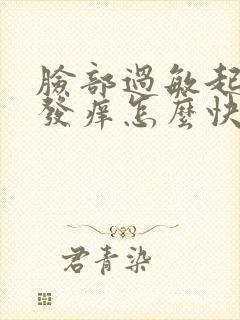 臉部過敏起
發癢怎麼快
君青染